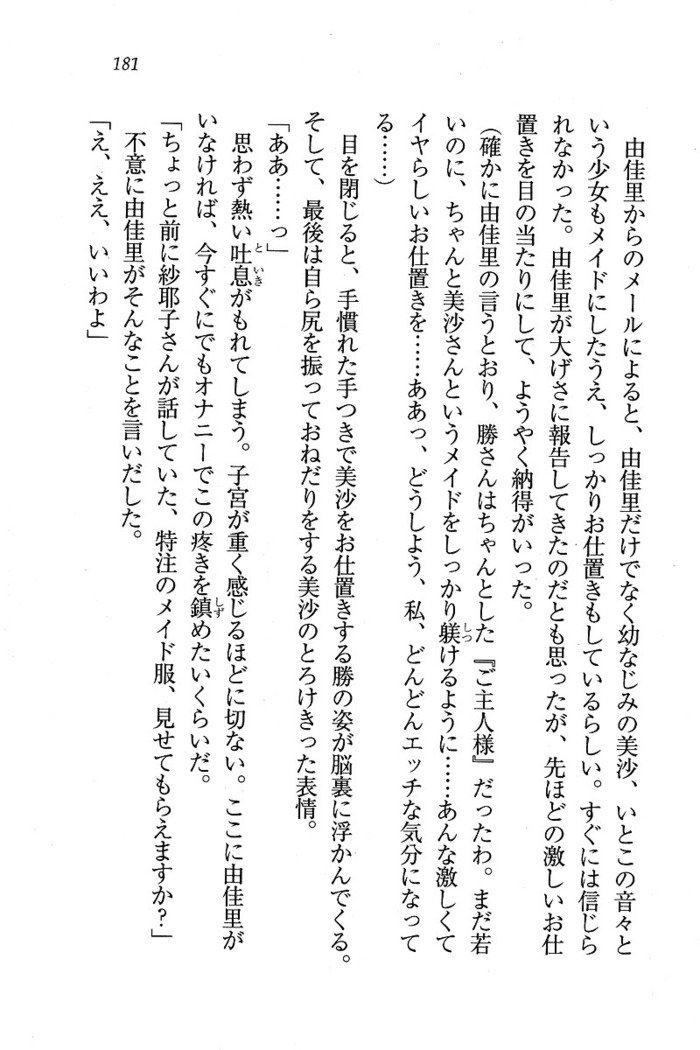 181
由佳里からのメールによると、由佳里だけでなく幼なじみの美沙、いとこの音々と
いう少女もメイドにしたうえ、しっかりお仕置きもしているらしい。すぐには信じら
れなかった。由佳里が大げさに報告してきたのだとも思ったが、先ほどの激しいお仕
置きを目の当たりにして、ようやく納得がいった。
（確かに由佳里の言うとおり、勝さんはちゃんとした『ご主人様』だったわ。まだ若
いのに、ちゃんと美沙さんというメイドをしっかり躾けるように……あんな激しくて
イヤらしいお仕置きを……ああっ、どうしよう、私、どんどんエッチな気分になって
る……）
目を閉じると、手慣れた手つきで美沙をお仕置きする勝の姿が脳裏に浮かんでくる。
そして、最後は自ら尻を振っておねだりをする美沙のとろけきった表情。
「ああ……っ」
思わず熱い吐息がもれてしまう。子宮が重く感じるほどに切ない。ここに由佳里が
いなければ、今すぐにでもオナニーでこの疼きを鎮めたいくらいだ。
「ちょっと前に紗耶子さんが話していた、特注のメイド服、見せてもらえますか？」
不意に由佳里がそんなことを言いだした。
「え、ええ、いいわよ」